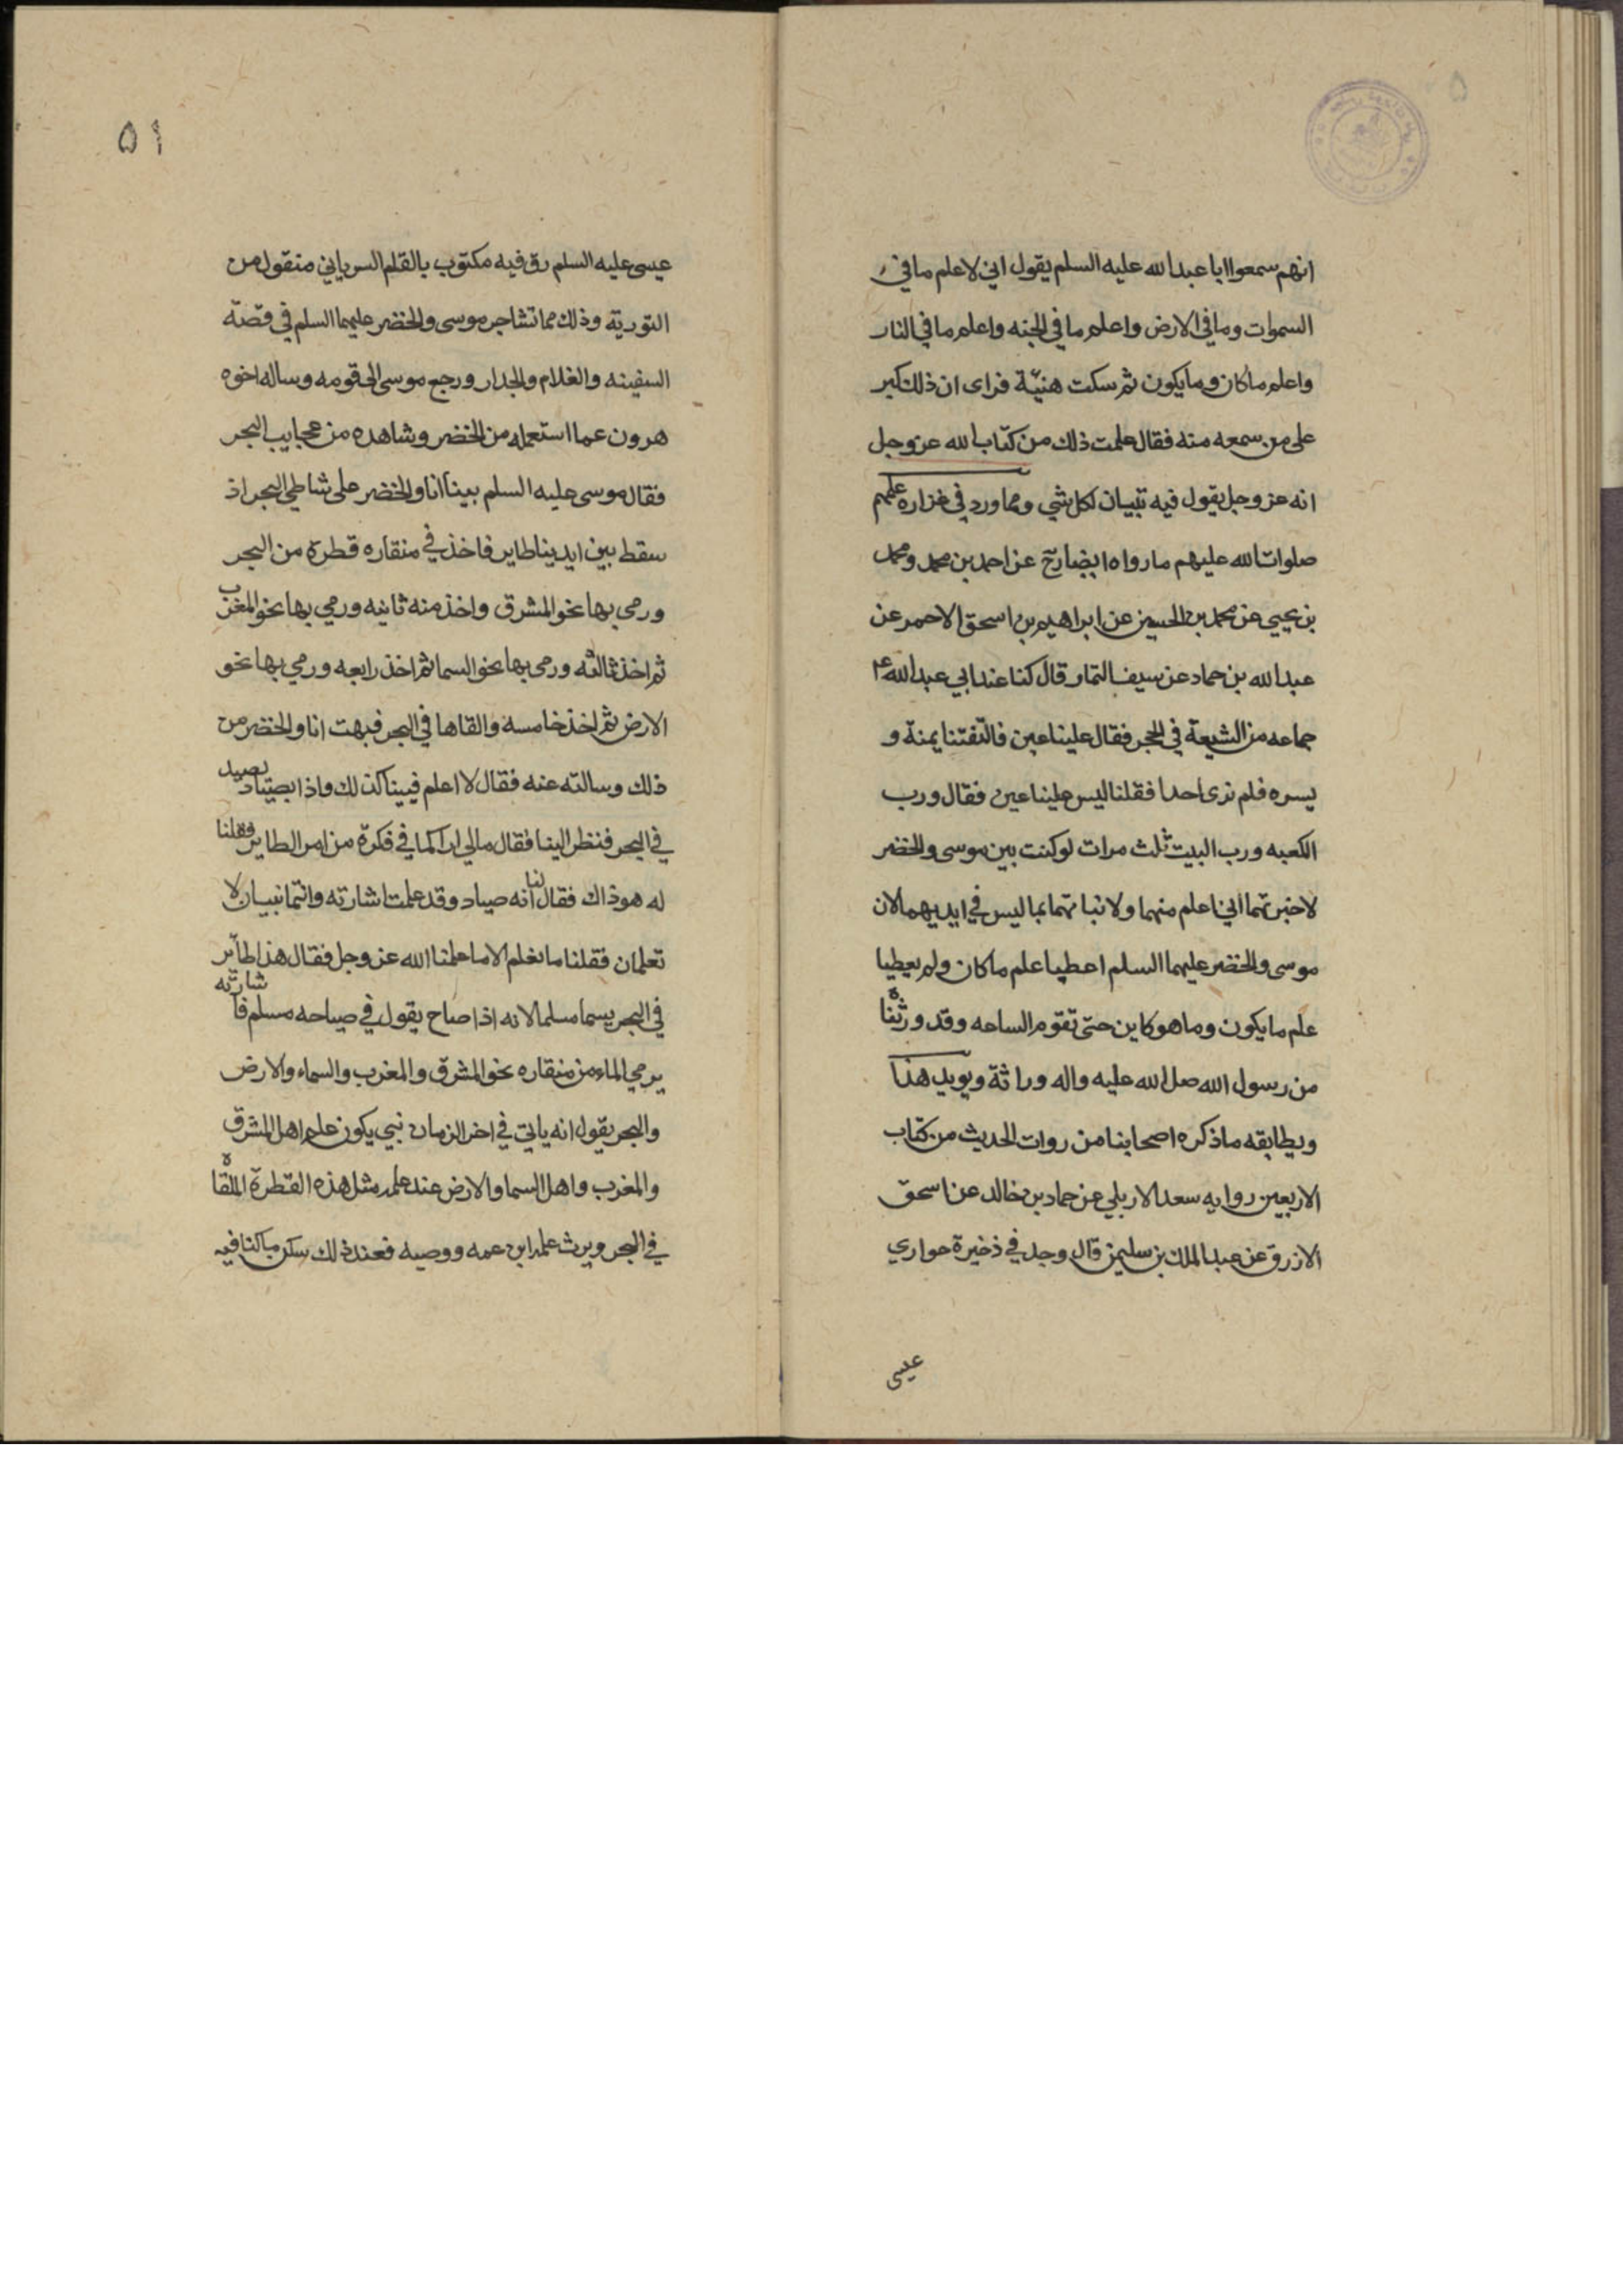 انهم سمعوا ابا عبدالله عليه السلم يقول اني لاعلم ما في
السموات وما في الارض واعلم ما في الجنه واعلم ما في النار
واعلم ما كان وما يكون ثم سكت هنيّة فراى ان ذلك كبر
على من سمعه منه فقال علمت ذلك من كتاب الله عز وجل
انه عز وجل يقول فيه تبيان لكل شي ومما ورد في غزاره علمهم
صلوات الله عليهم ما رواه ايضا رح عن احمد بن محمد ومحمد
بن يحيى عن محمد بن الحسين عن ابراهيم بن اسحق الاحمر عن
عبدالله بن حماد عن سيف التمار قال كنا عند ابي عبدالله ع
جماعه من الشيعة في الحجر فقال علينا عين فالتفتنا يمنة و
يسره فلم نرى احدا فقلنا ليس علينا عين فقال ورب
الكعبه ورب البيت ثلث مرات لو كنت بين موسى والخضر
لاخبرتهما اني اعلم منهما ولانباتهما بما ليس في ايديهما لان
موسى والخضر عليهما السلم اعطيا علم ما كان ولم يعطيا
علم ما يكون وما هو كاين حتى تقوم الساعه وقد ورثناه
من رسول الله صلى الله عليه واله وراثة ويويد هذا
ويطابقه ما ذكره اصحابنا من روات الحديث من كتاب
الاربعين روايه سعد الاربلي عن حماد بن خالد عن اسحق
الازرق عن عبد الملك بن سليمن قال وجد في ذخيرة حواري
عيسى
۵۱
عيسى عليه السلم رق فيه مكتوب بالقلم السرياني منقول من
التورية وذلك مما تشاجر موسى والخضر عليهما السلم في قصّة
السفينه والغلام والجدار ورجع موسى الى قومه وساله اخوه
هرون عما استعمله من الخضر وشاهده من عجايب البحر
فقال موسى عليه السلم بينا انا والخضر على شاطي البحر اذ
سقط بين ايدينا طاير فاخذ في منقاره قطرة من البحر
ورمى بها نحو المشرق واخذ منه ثانيه ورمي بها نحو المغرب
ثم اخذ ثالثه ورمى بها نحو السما ثم اخذ رابعه ورمي بها نحو
الارض ثم اخذ خامسه والقاها في البحر فبهت انا والخضر من
ذلك وسالته عنه فقال لا اعلم فبينا كذلك واذا بصياد يصيد
في البحر فنظر الينا فقال مالي اراكما في فكرة من امر الطاير فقلنا
له هو ذاك فقال لنا انه صياد وقد علمت اشارته وانتما نبيان لا
تعلمان فقلنا ما نعلم الا ما علمنا الله عز وجل فقال هذا طاير
في البحر يسما مسلما لانه اذا صاح يقول في صياحه مسلم فاشارته
يرمي الماء من منقاره نحو المشرق والمغرب والسماء والارض
والبحر يقول انه ياتي في اخر الزمان نبي يكون علم اهل المشرق
والمغرب واهل السما والارض عند علمه مثل هذه القطرة الملقاه
في البحر ويرث علمه ابن عمه ووصيه فعند ذلك سكن ما كنا فيه